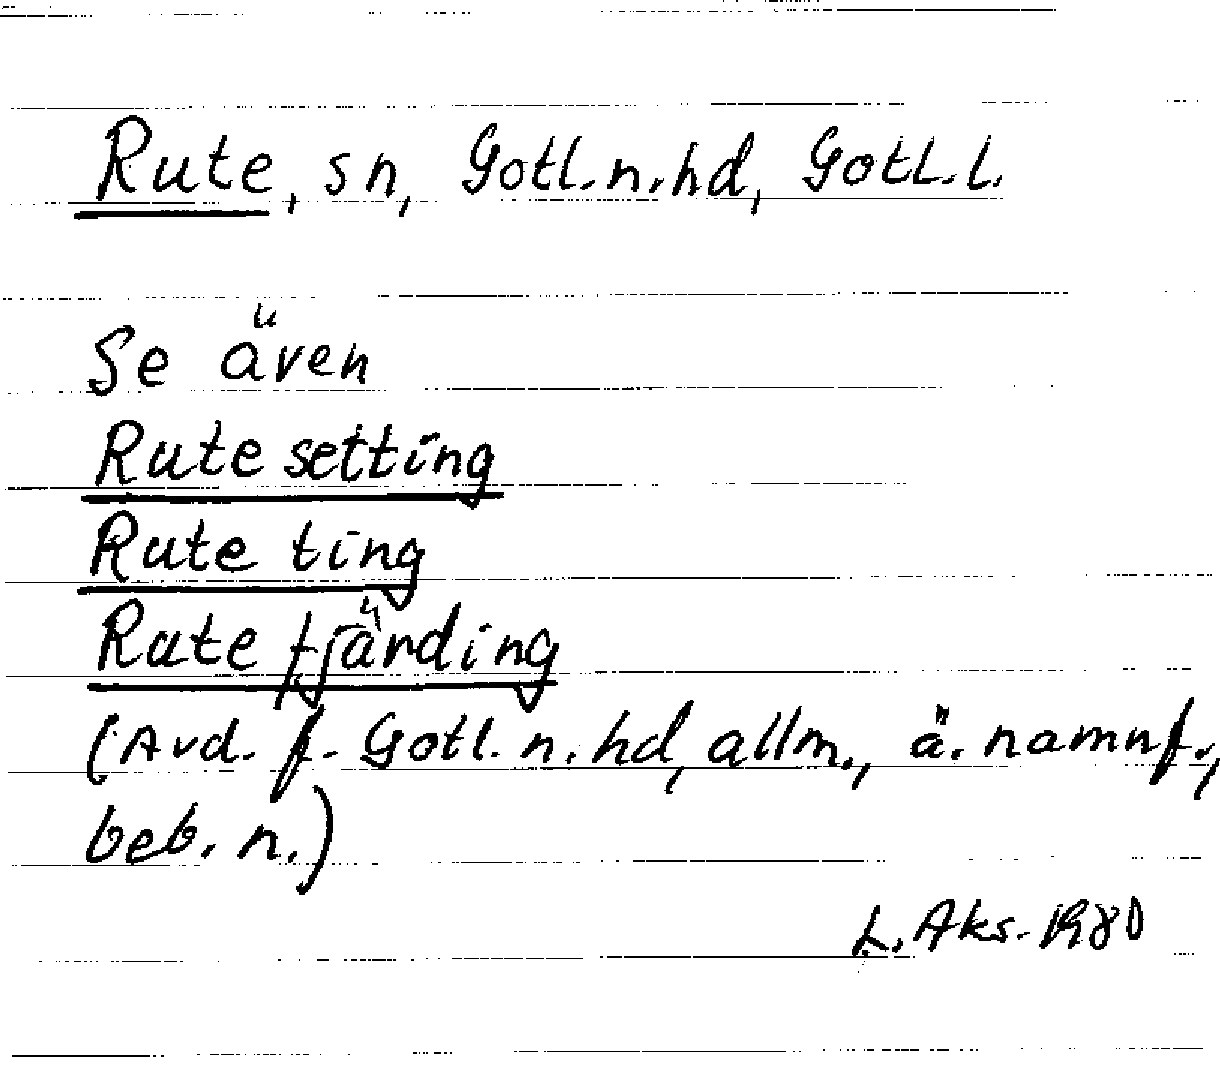 Rute, sn, Gotl.n.hd, Gotl.l.
Se även
Rute setting
Rute ting
Rute fjärding
(Avd. f. Gotl. n. hd, allm., ä. namnf.,
beb. n.)
L. Aks. 1980